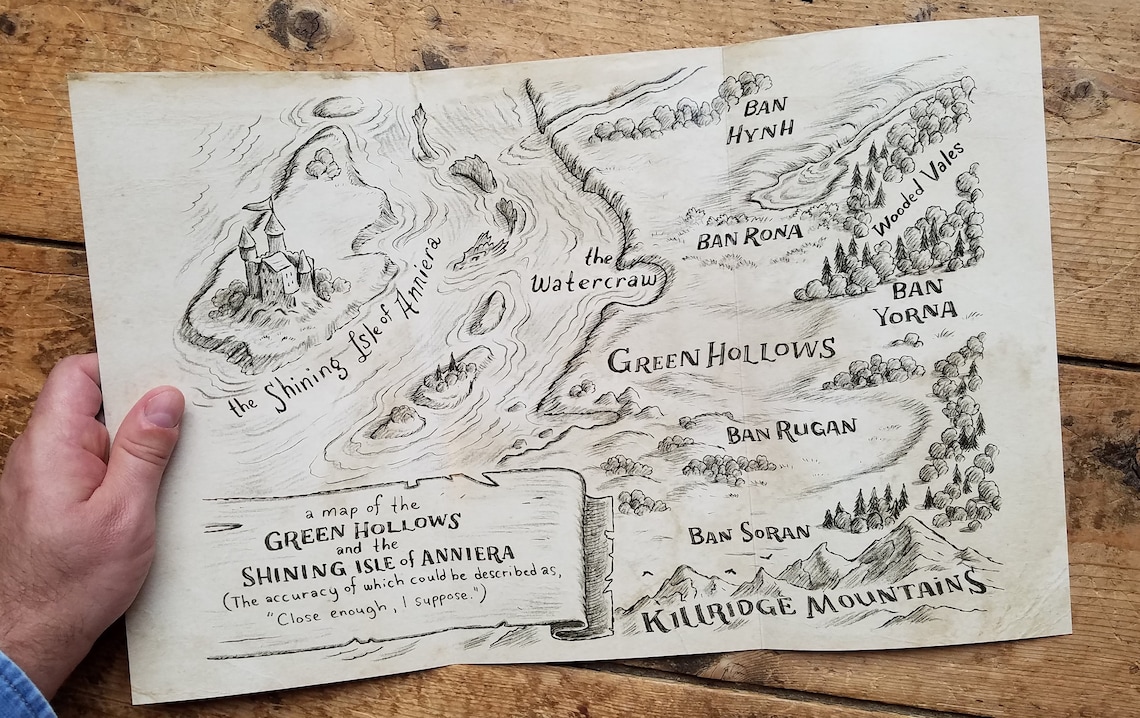 BAN
HYNH
Wooded Vales
BAN RONA
the
Watercraw
BAN
YORNA
the Shining Isle of Anniera
GREEN HOLLOWS
BAN RUGAN
BAN SORAN
KILLRIDGE MOUNTAINS
a map of the
GREEN HOLLOWS
and the
SHINING ISLE of ANNIERA
(The accuracy of which could be described as,
"Close enough, I suppose.")